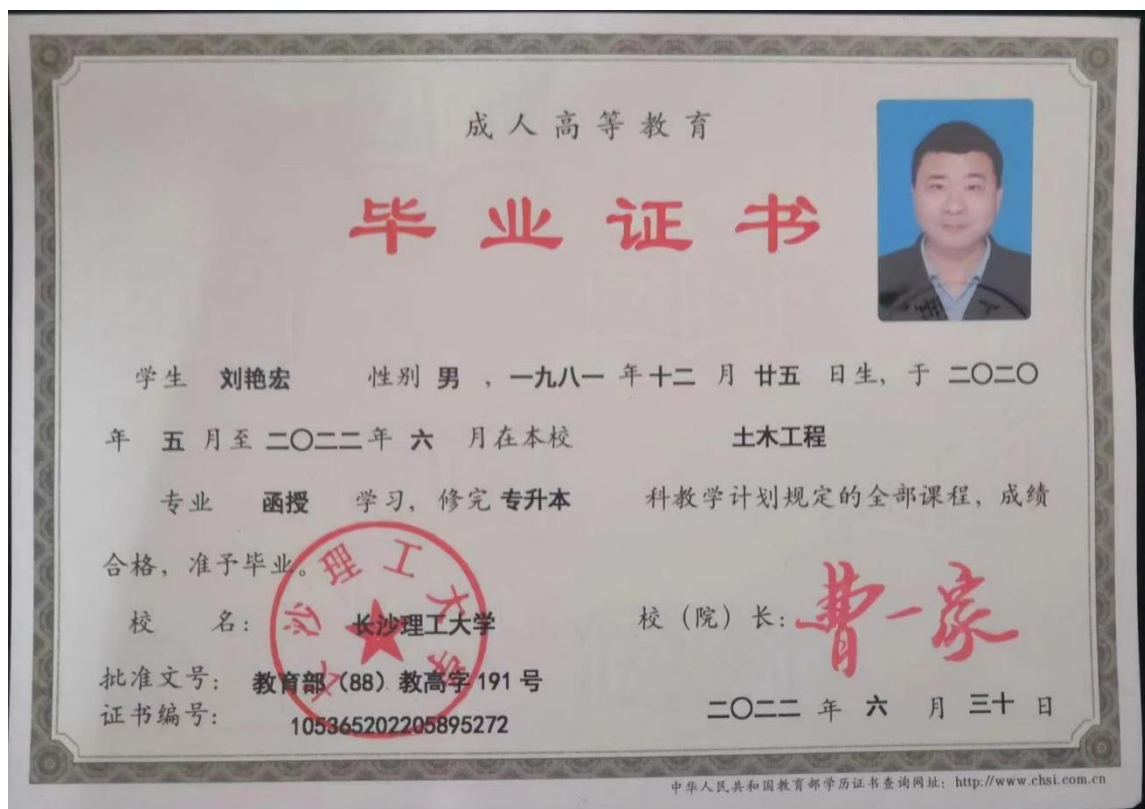 成人高等教育
毕业证书
学生 刘艳宏 性别 男 ，一九八一 年 十二 月 廿五 日生，于 二〇二〇
年 五 月至 二〇二二 年 六 月在本校 土木工程
专业 函授 学习，修完 专升本 科教学计划规定的全部课程，成绩
合格，准予毕业。
长沙理工大学
校 名： 长沙理工大学
校（院）长： 曹一家
批准文号： 教育部（88）教高字191号
证书编号： 105365202205895272
二〇二二 年 六 月 三十 日
中华人民共和国教育部学历证书查询网址：http://www.chsi.com.cn